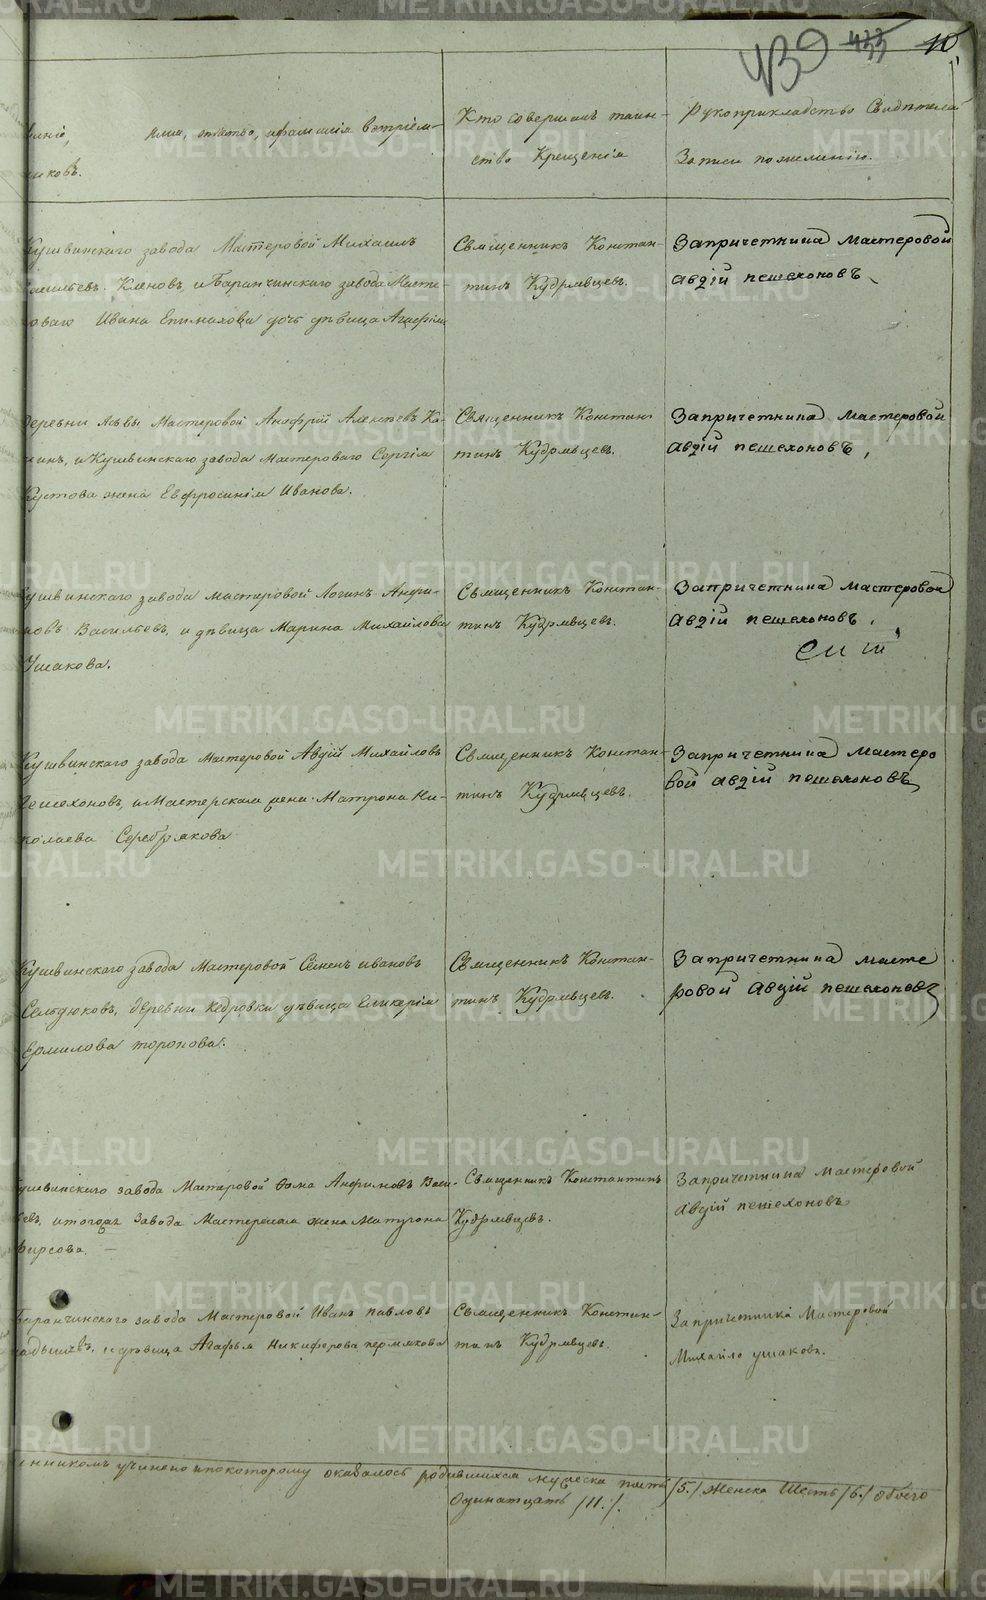 439 433 10
имя, отчество, и фамилия воспріем-
никовъ.
Кто совершалъ таин-
ство Крещенія
Рукоприкладство Свидѣтелей
Записи по желанію.
Кушвинскаго завода Мастеровой Михаилъ
Васильевъ Кленовъ, и Баранчинскаго завода Масте-
роваго Ивана Епимахова дочь дѣвица Агафія
Священникъ Констан-
тинъ Кудрявцевъ.
Запричетника мастеровой
авдій пешехоновъ
Деревни Асьвы Мастеровой Анофрій Алексѣевъ
и Кушвинскаго завода мастероваго Сергія
Кустова жена Евфросинія Иванова.
Священникъ Констан
тинъ Кудрявцевъ.
Запричетника мастеровой
авдій пешехоновъ,
Кушвинскаго завода мастеровой Логинъ Анфи-
новъ Васильевъ, и дѣвица Марина Михайлова
Ушакова.
Священникъ Констан-
тинъ Кудрявцевъ.
Запричетника мастеровой
авдій пешехоновъ,
Кушвинскаго завода Мастеровой Авдій Михайловъ
Пешехоновъ, и Мастерская жена Матрона Ни-
колаева Серебрякова
Священникъ Констан-
тинъ Кудрявцевъ.
Запричетника мастеро
вой авдій пешехоновъ
Кушвинскаго завода Мастеровой Семенъ ивановъ
Селдюковъ, деревни Кедровки дѣвица Гликерія
Ермилова торопова.
Священникъ Констан-
тинъ Кудрявцевъ.
Запричетника масте
ровой Авдій пешехоновъ
Кушвинскаго завода Мастеровой Ѳома Анфиновъ Васи-
евъ, и тогожъ завода Мастерская жена Матрона
Фирсова.
Священникъ Константинъ
Кудрявцевъ.
Запричетника мастеровой
Авдій пешехоновъ
Баранчинскаго завода Мастеровой Иванъ павловъ
и дѣвица Агафья Никифорова пермякова
Священникъ Констан-
тинъ Кудрявцевъ.
Запричетника Мастеровой
Михайло ушаковъ.
учинено и по которому оказалось родившихся мужеска пять /5./ Женска Шесть /6./ обоего
одинатцать /11./.
METRIKI.GASO-URAL.RU